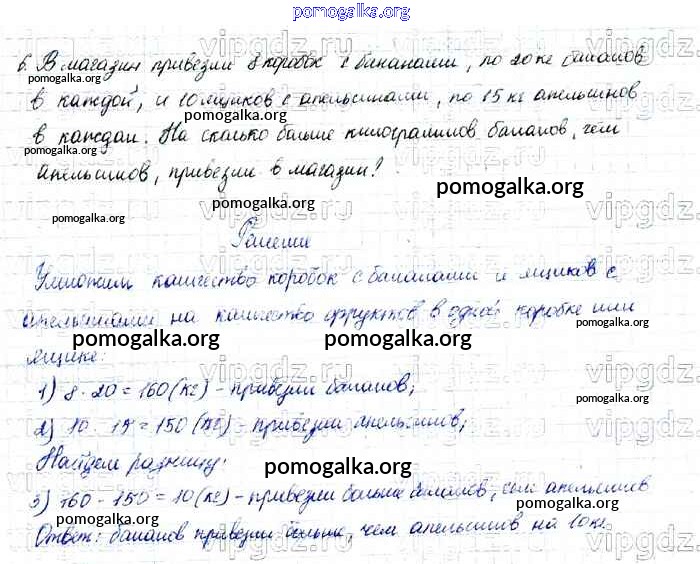 pomogalka.org
6. В магазин привезли 8 коробок с бананами, по 20 кг бананов
pomogalka.org
в каждой, и 10 ящиков с апельсинами, по 15 кг апельсинов
pomogalka.org
в каждом. На сколько больше килограммов бананов, чем
апельсинов, привезли в магазин?
pomogalka.org
pomogalka.org
Решение
vipgdz.ru
Умножим количество коробок с бананами и ящиков с
апельсинами на количество фруктов в одной коробке или
pomogalka.org pomogalka.org
ящике:
1) 8 · 20 = 160 (кг) - привезли бананов;
pomogalka.org
2) 10 · 15 = 150 (кг) - привезли апельсинов;
Найдем разницу:
pomogalka.org
3) 160 - 150 = 10 (кг) - привезли больше бананов, чем апельсинов
pomogalka.org pomogalka.org
Ответ: бананов привезли больше, чем апельсинов на 10 кг.